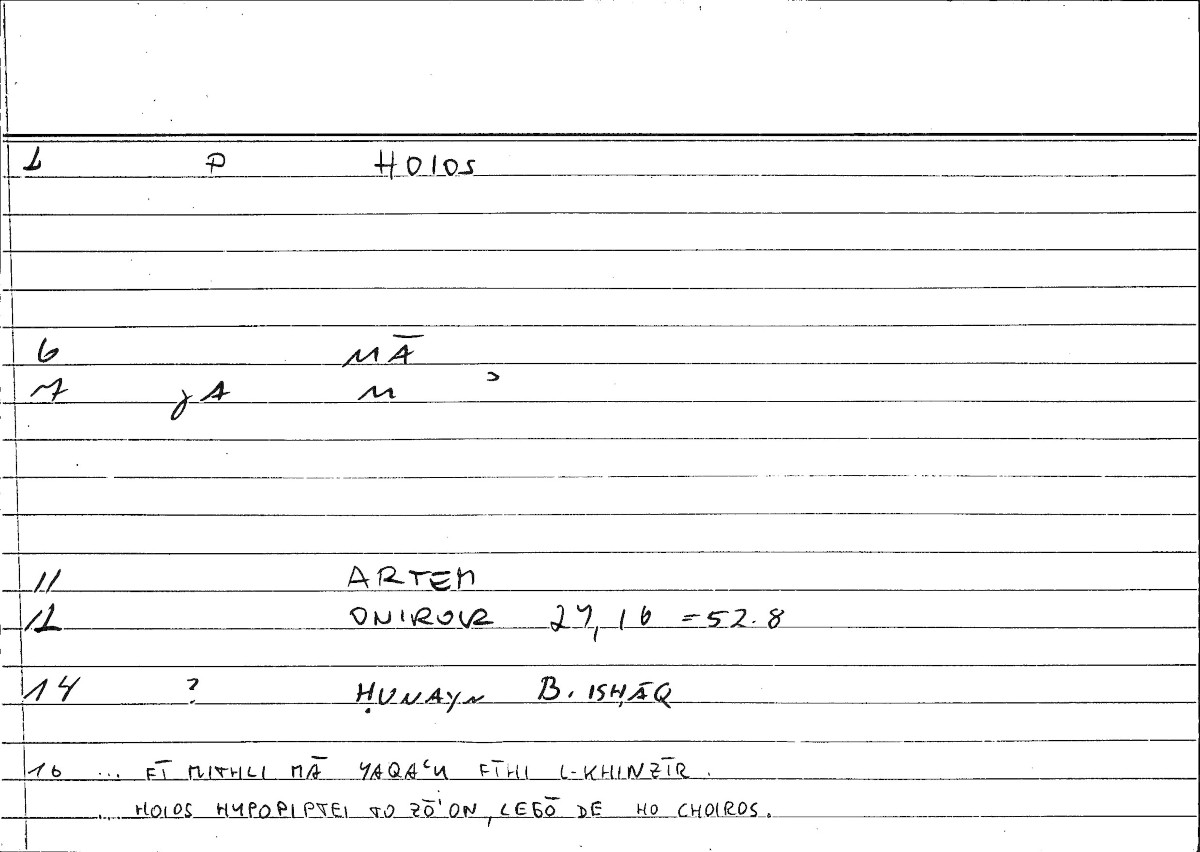 1 P HOIOS
6 MĀ
7 JA M ʾ
11 ARTEM
12 ONIROCR 24,16 =52.8
14 ? ḤUNAYN B. ISḤĀQ
16 ... FĪ MITHLI MĀ YAQAʿU FĪHI L-KHINZĪR.
... HOIOS HYPOPIPTEI TO ZŌ'ON, LEGŌ DE HO CHOIROS.